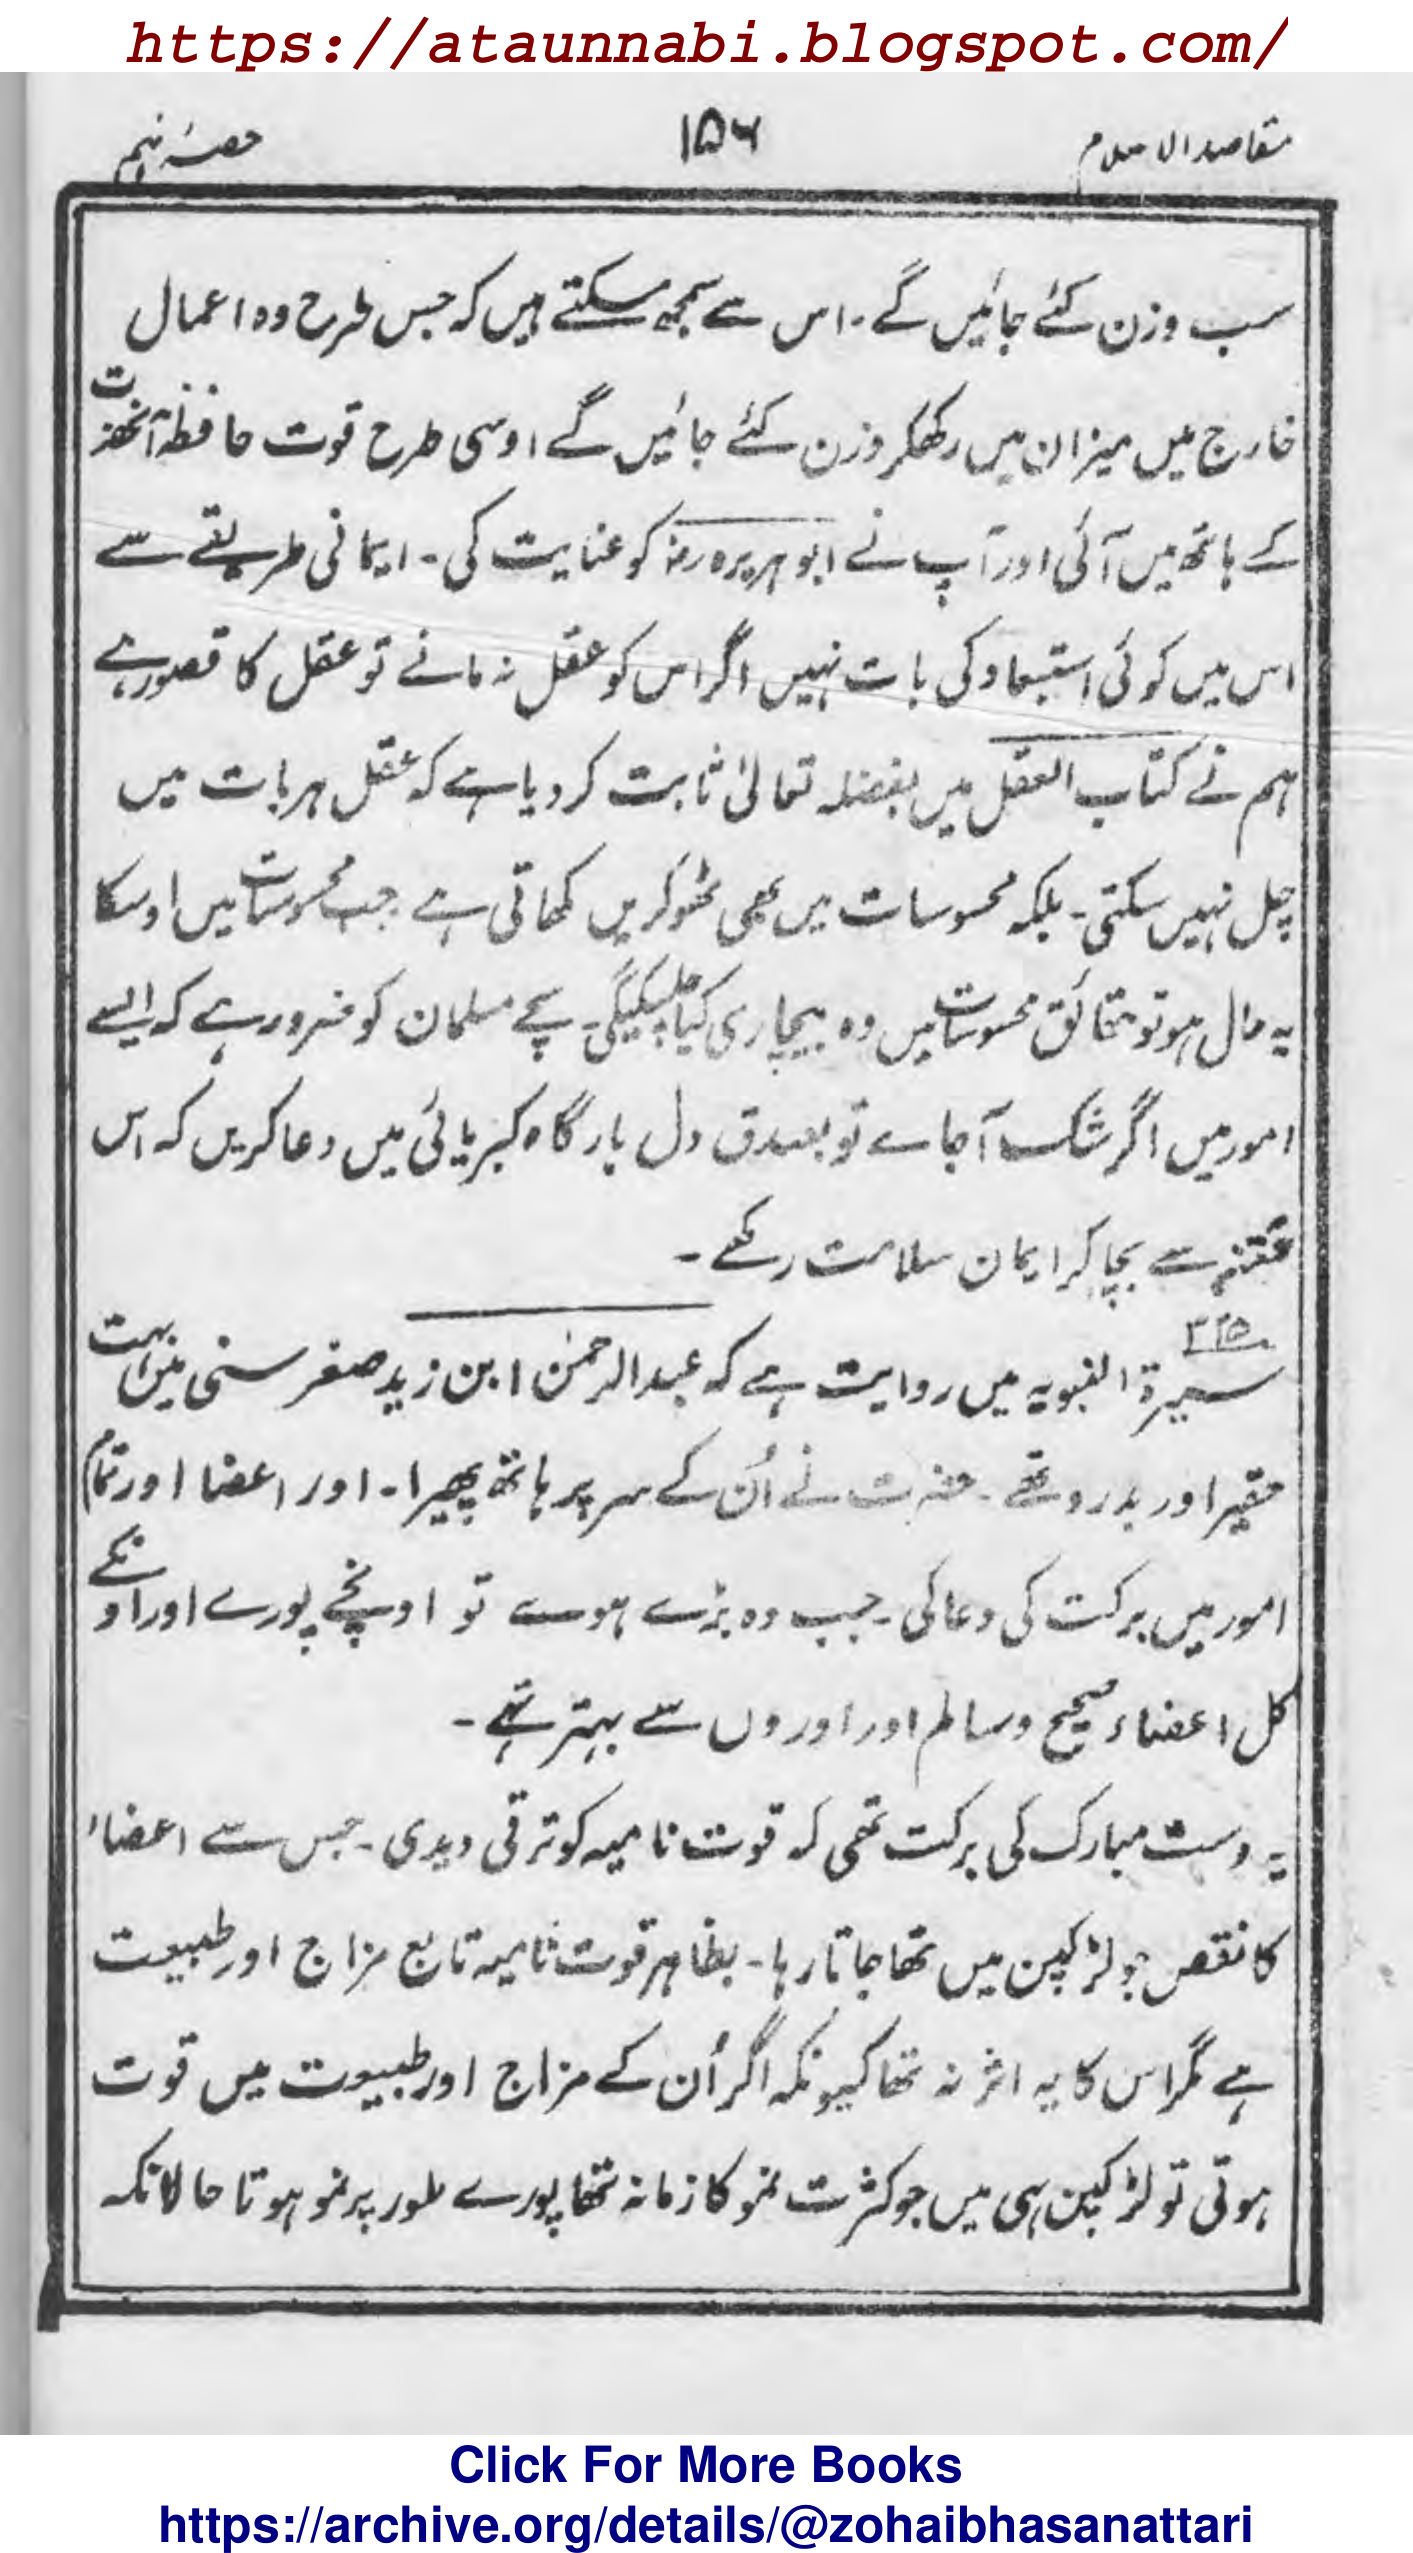 https://ataunnabi.blogspot.com/
مقاصد الاسلام ۱۵۶ حصۂ نہم
سب وزن کئے جائیں گے۔ اس سے سمجھ سکتے ہیں کہ جس طرح وہ اعمال
خارج میں میزان میں رکھکر وزن کئے جائیں گے اوسی طرح قوت حافظہ آنحضرت
کے ہاتھ میں آئی اور آپ نے ابوہریرہ رضؓ کو عنایت کی۔ ایمانی طریقے سے
اس میں کوئی استبعاد کی بات نہیں اگر اس کو عقل نہ مانے تو عقل کا قصور ہے
ہم نے کتاب العقل میں بفضلہ تعالیٰ ثابت کر دیا ہے کہ عقل ہر بات میں
چل نہیں سکتی۔ بلکہ محسوسات میں بھی ٹھوکریں کھاتی ہے جب محسوسات میں اوسکا
یہ حال ہو تو حقائق محسوسات میں وہ بیچاری کیا چلیگی۔ سچے مسلمان کو ضرور ہے کہ ایسے
امور میں اگر شک آجاے تو بصدق دل بارگاہ کبریائی میں دعا کریں کہ اس
فتنہ سے بچا کر ایمان سلامت رکھے۔
سیرۃ النبویہ میں روایت ہے کہ عبدالرحمٰن ابن زید صغر سنی میں بہت
حقیر اور بدرو تھے۔ حضرت نے اُن کے سر پر ہاتھ پھیرا۔ اور اعضا اور تمام
امور میں برکت کی دعا کی۔ جب وہ بڑے ہوے تو اونچے پورے اور اونکے
کل اعضاء صحیح و سالم اور اوروں سے بہتر تھے۔
یہ دست مبارک کی برکت تھی کہ قوت نامیہ کو ترقی دیدی۔ جس سے اعضاء
کا نقص جو لڑکپن میں تھا جاتا رہا۔ بظاہر قوت نامیہ تابع مزاج اور طبیعت
ہے مگر اس کا یہ اثر نہ تھا کیونکہ اگر اُن کے مزاج اور طبیعت میں قوت
ہوتی تو لڑکپن ہی میں جو کثرت نمو کا زمانہ تھا پورے طور پر نمو ہوتا حالانکہ
Click For More Books
https://archive.org/details/@zohaibhasanattari